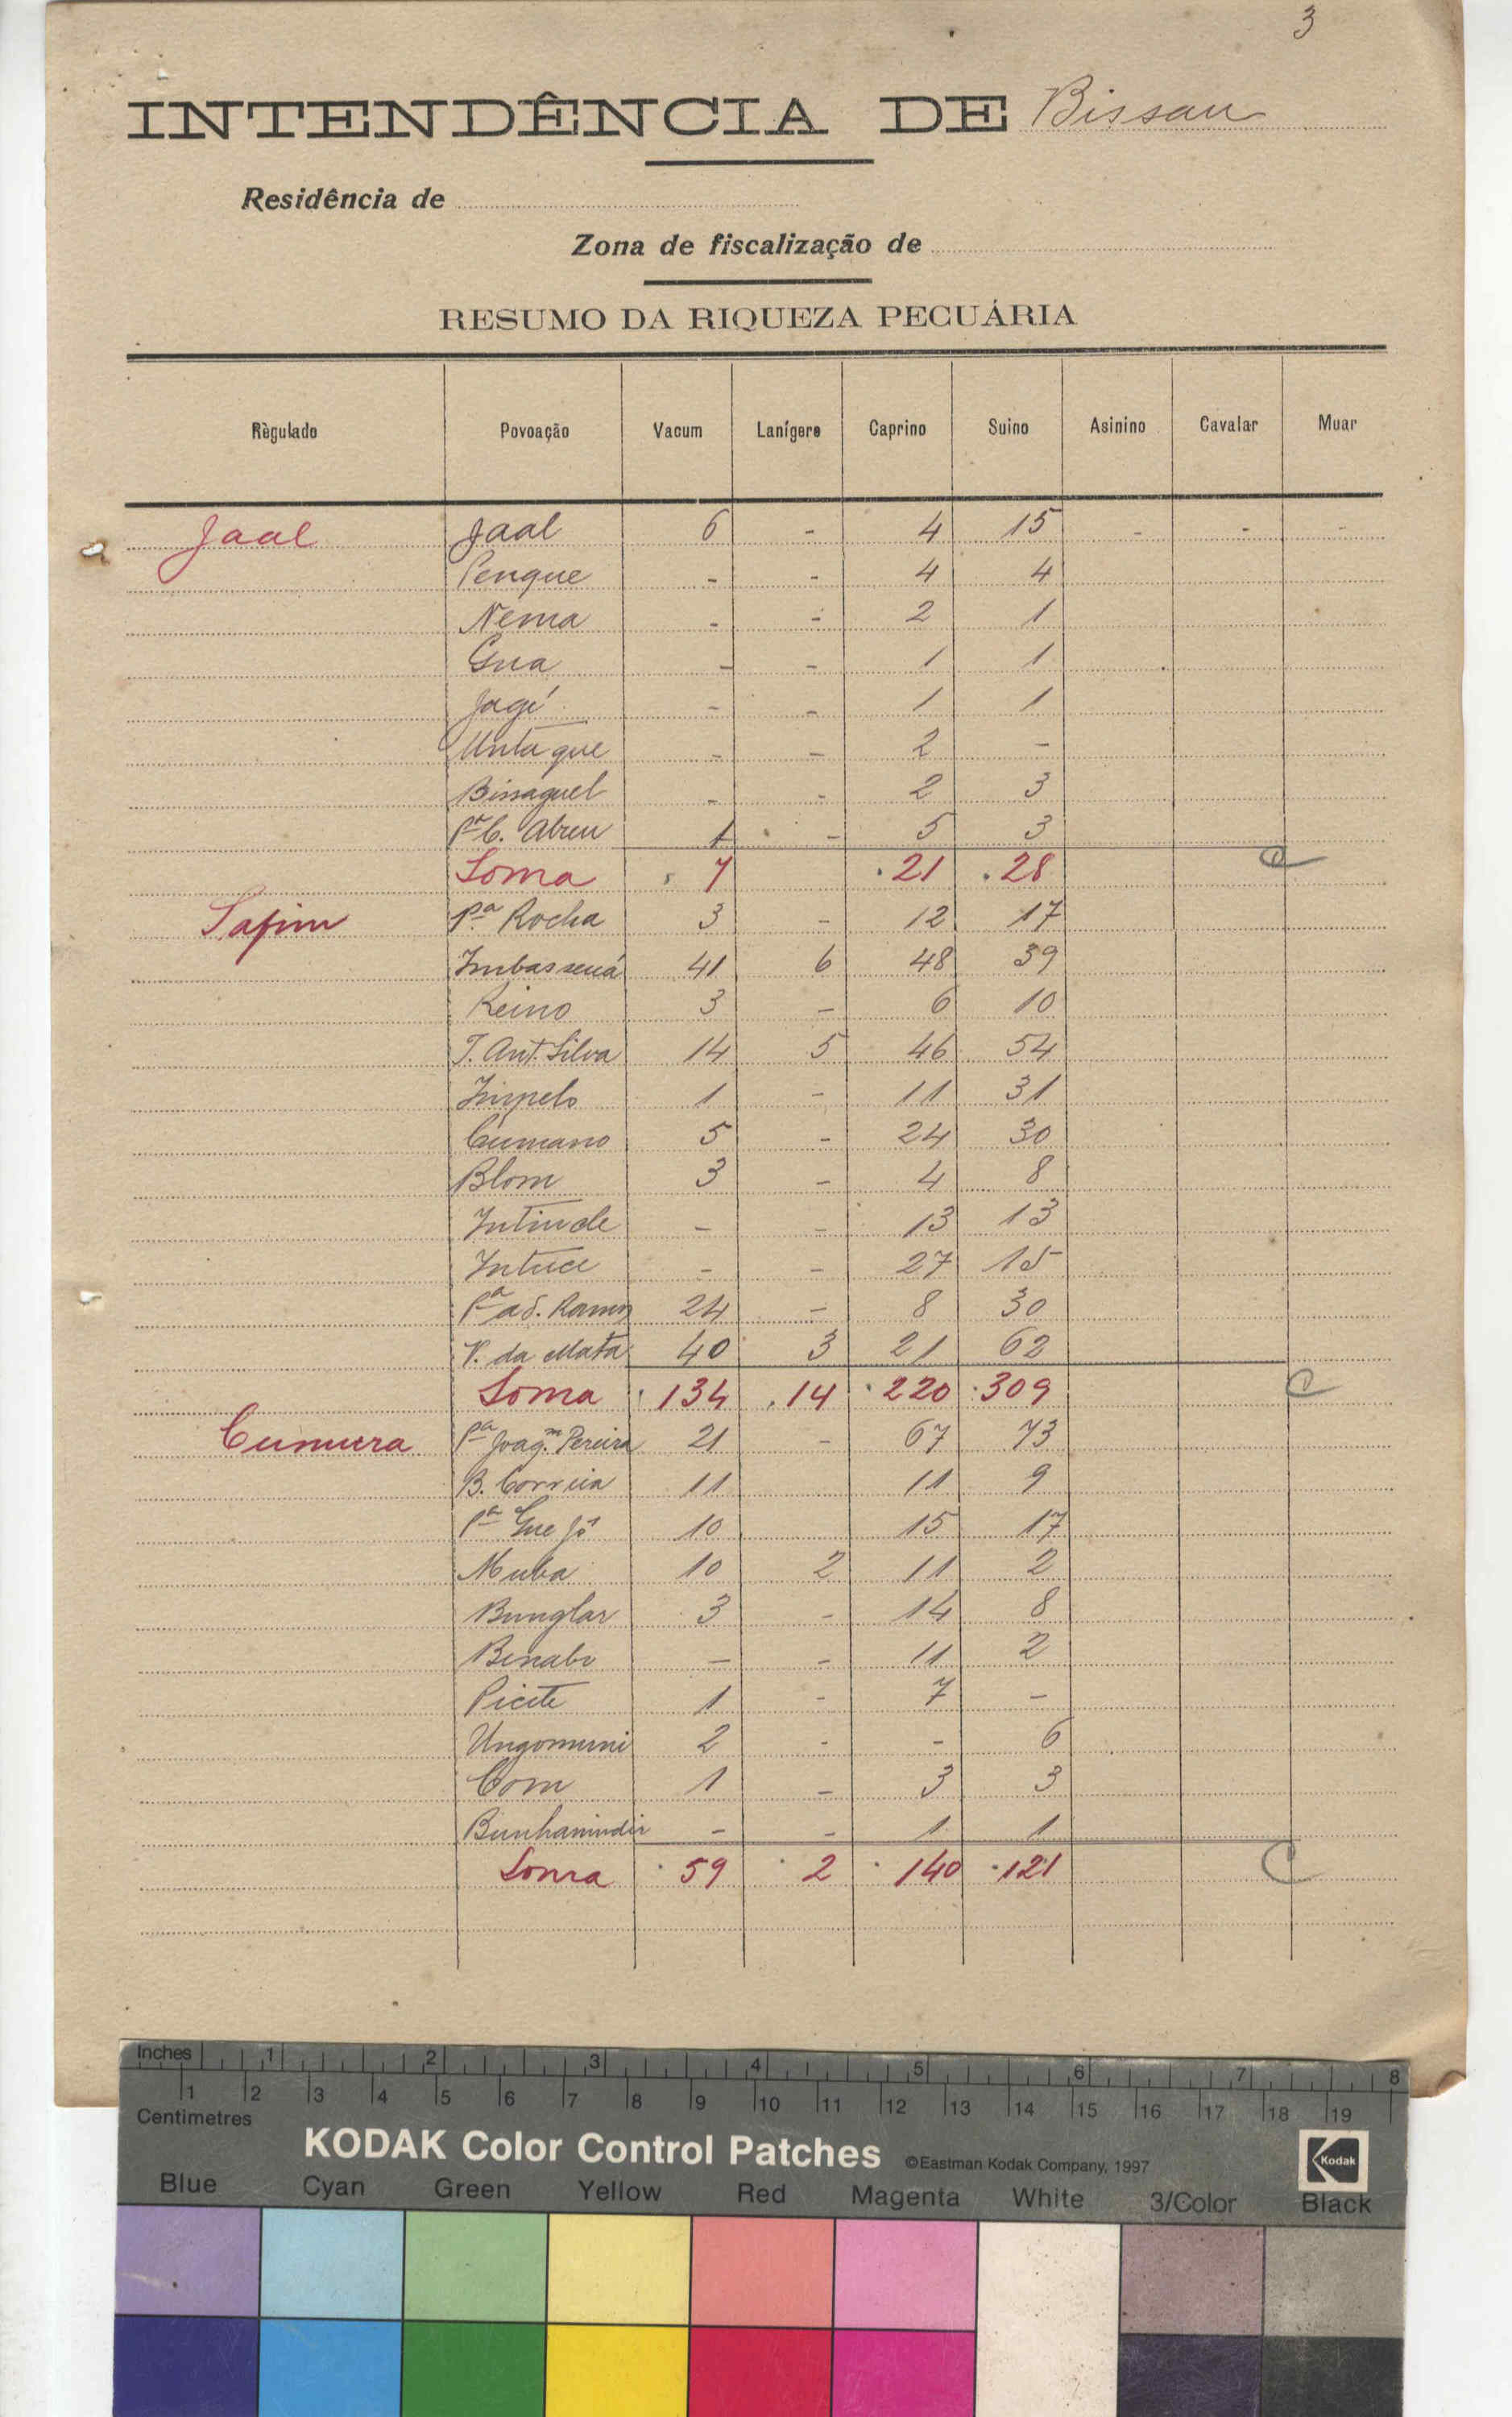 3
INTENDÊNCIA DE Bissau
Residência de
Zona de fiscalização de
RESUMO DA RIQUEZA PECUÁRIA
Règulado Povoação Vacum Lanígero Caprino Suino Asinino Cavalar Muar
Jaal Jaal 6 - 4 15 - - -
Penque - - 4 4
Nema - - 2 1
Gua - - 1 1
Jagé - - 1 1
Untaque - - 2 -
Bissaguel - - 2 3
Pª C. Abreu 1 - 5 3
Soma 7 21 28
Safim Pª Rocha 3 - 12 17
Imbassená 41 6 48 39
Reino 3 - 6 10
T. Ant. Silva 14 5 46 54
Impelo 1 - 11 31
Cumano 5 - 24 30
Blom 3 - 4 8
Intinde - - 13 13
Intuce - - 27 15
Pª ad. Ramos 24 - 8 30
V. da Mata 40 3 21 62
Soma 134 14 220 309
Cumura Pª Joaqm. Pereira 21 - 67 73
B. Correia 11 11 9
Pª Gue Jô 10 15 17
Muba 10 2 11 2
Bunglar 3 - 14 8
Benabo - - 11 2
Picite 1 - 7 -
Ungomuni 2 - - 6
Com 1 - 3 3
Bunhanindin - - 1 1
Soma 59 2 140 121
Inches 1 2 3 4 5 6 7 8
1 2 3 4 5 6 7 8 9 10 11 12 13 14 15 16 17 18 19
Centimetres
KODAK Color Control Patches ©Eastman Kodak Company, 1997 Kodak
Blue Cyan Green Yellow Red Magenta White 3/Color Black